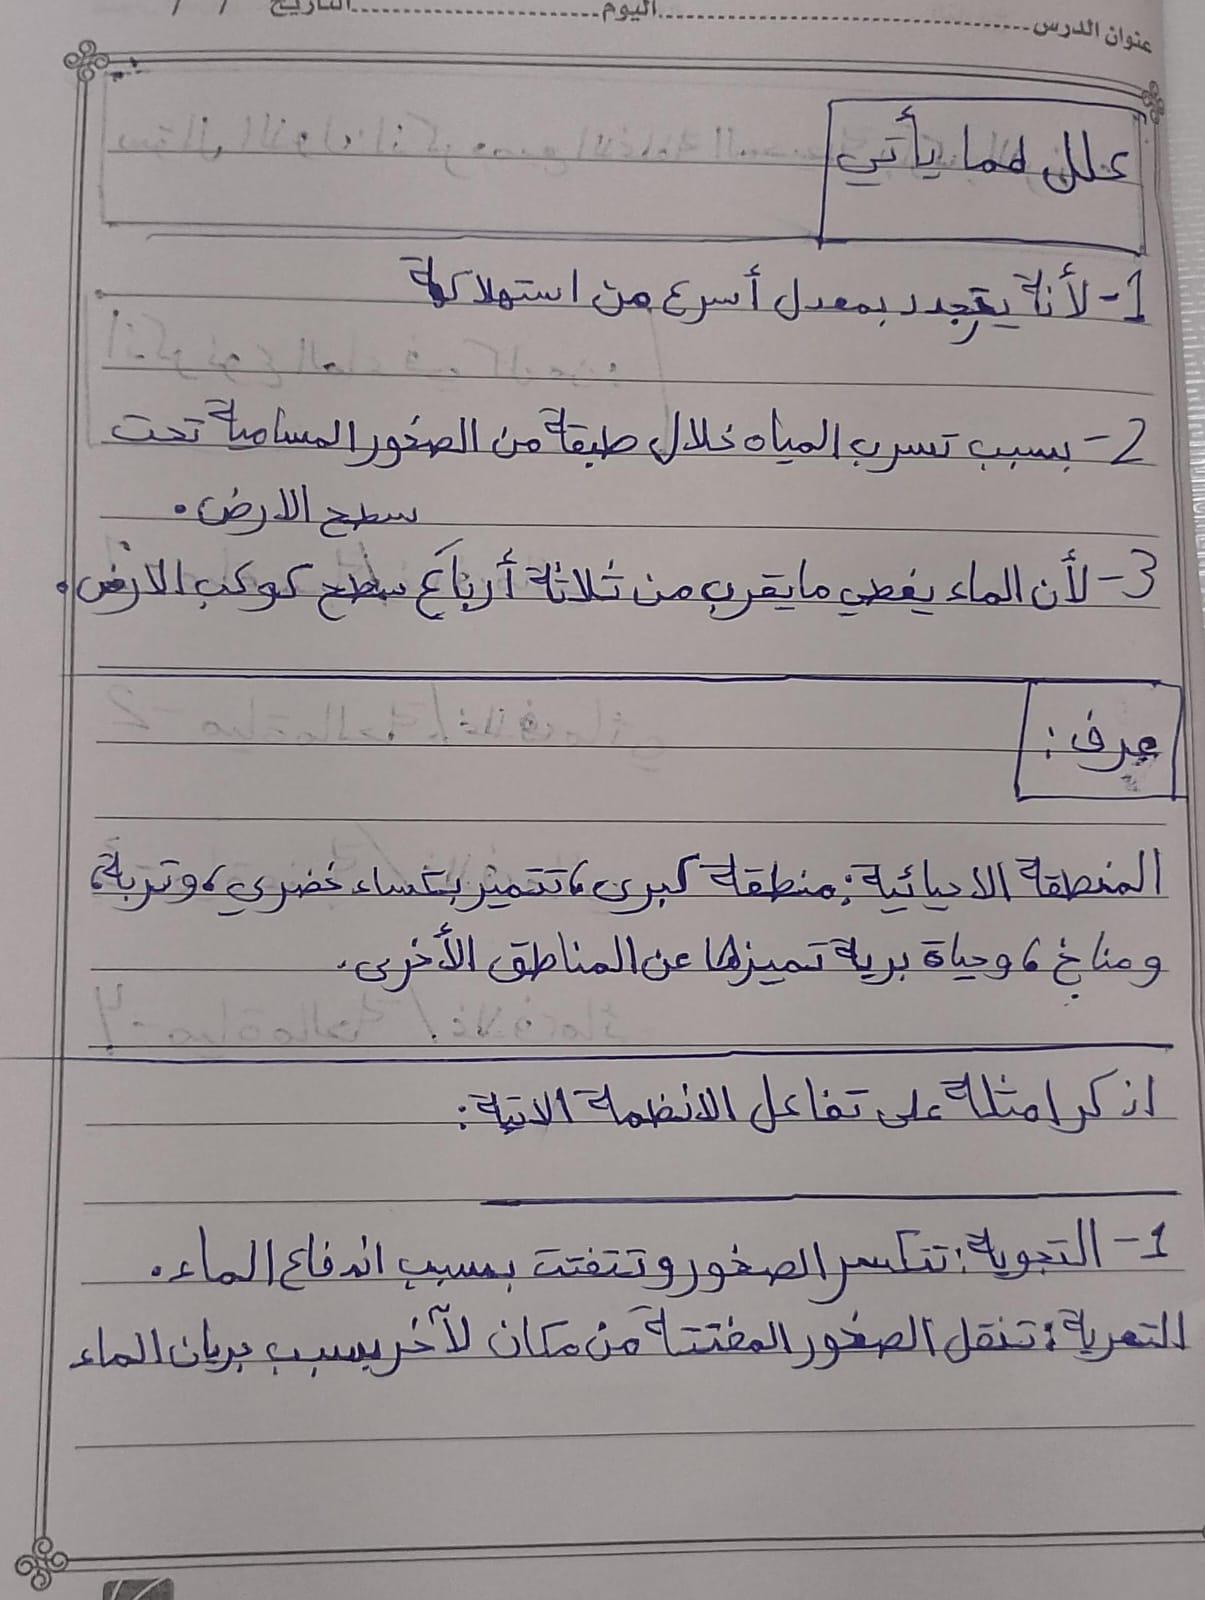 عنوان الدرس اليوم التاريخ / /
علل مما يأتي
1- لأنة يتجدد بمعدل أسرع من استهلاكة
2- بسبب تسرب المياه خلال طبقة من الصخور المسامية تحت
سطح الارض.
3- لأن الماء يغطي مايقرب من ثلاثة أرباع سطح كوكب الارض.
عرف:
المنطقة الاحيائية: منطقة كبرى، تتميز بكساء خضري، وتربة،
ومناخ، وحياة برية تميزها عن المناطق الأخرى.
اذكر امثلة على تفاعل الانظمة الاتية:
1- التجوية: تتكسر الصخور وتتفتت بسبب اندفاع الماء.
التعرية: تنقل الصخور المفتتة من مكان لآخر بسبب جريان الماء